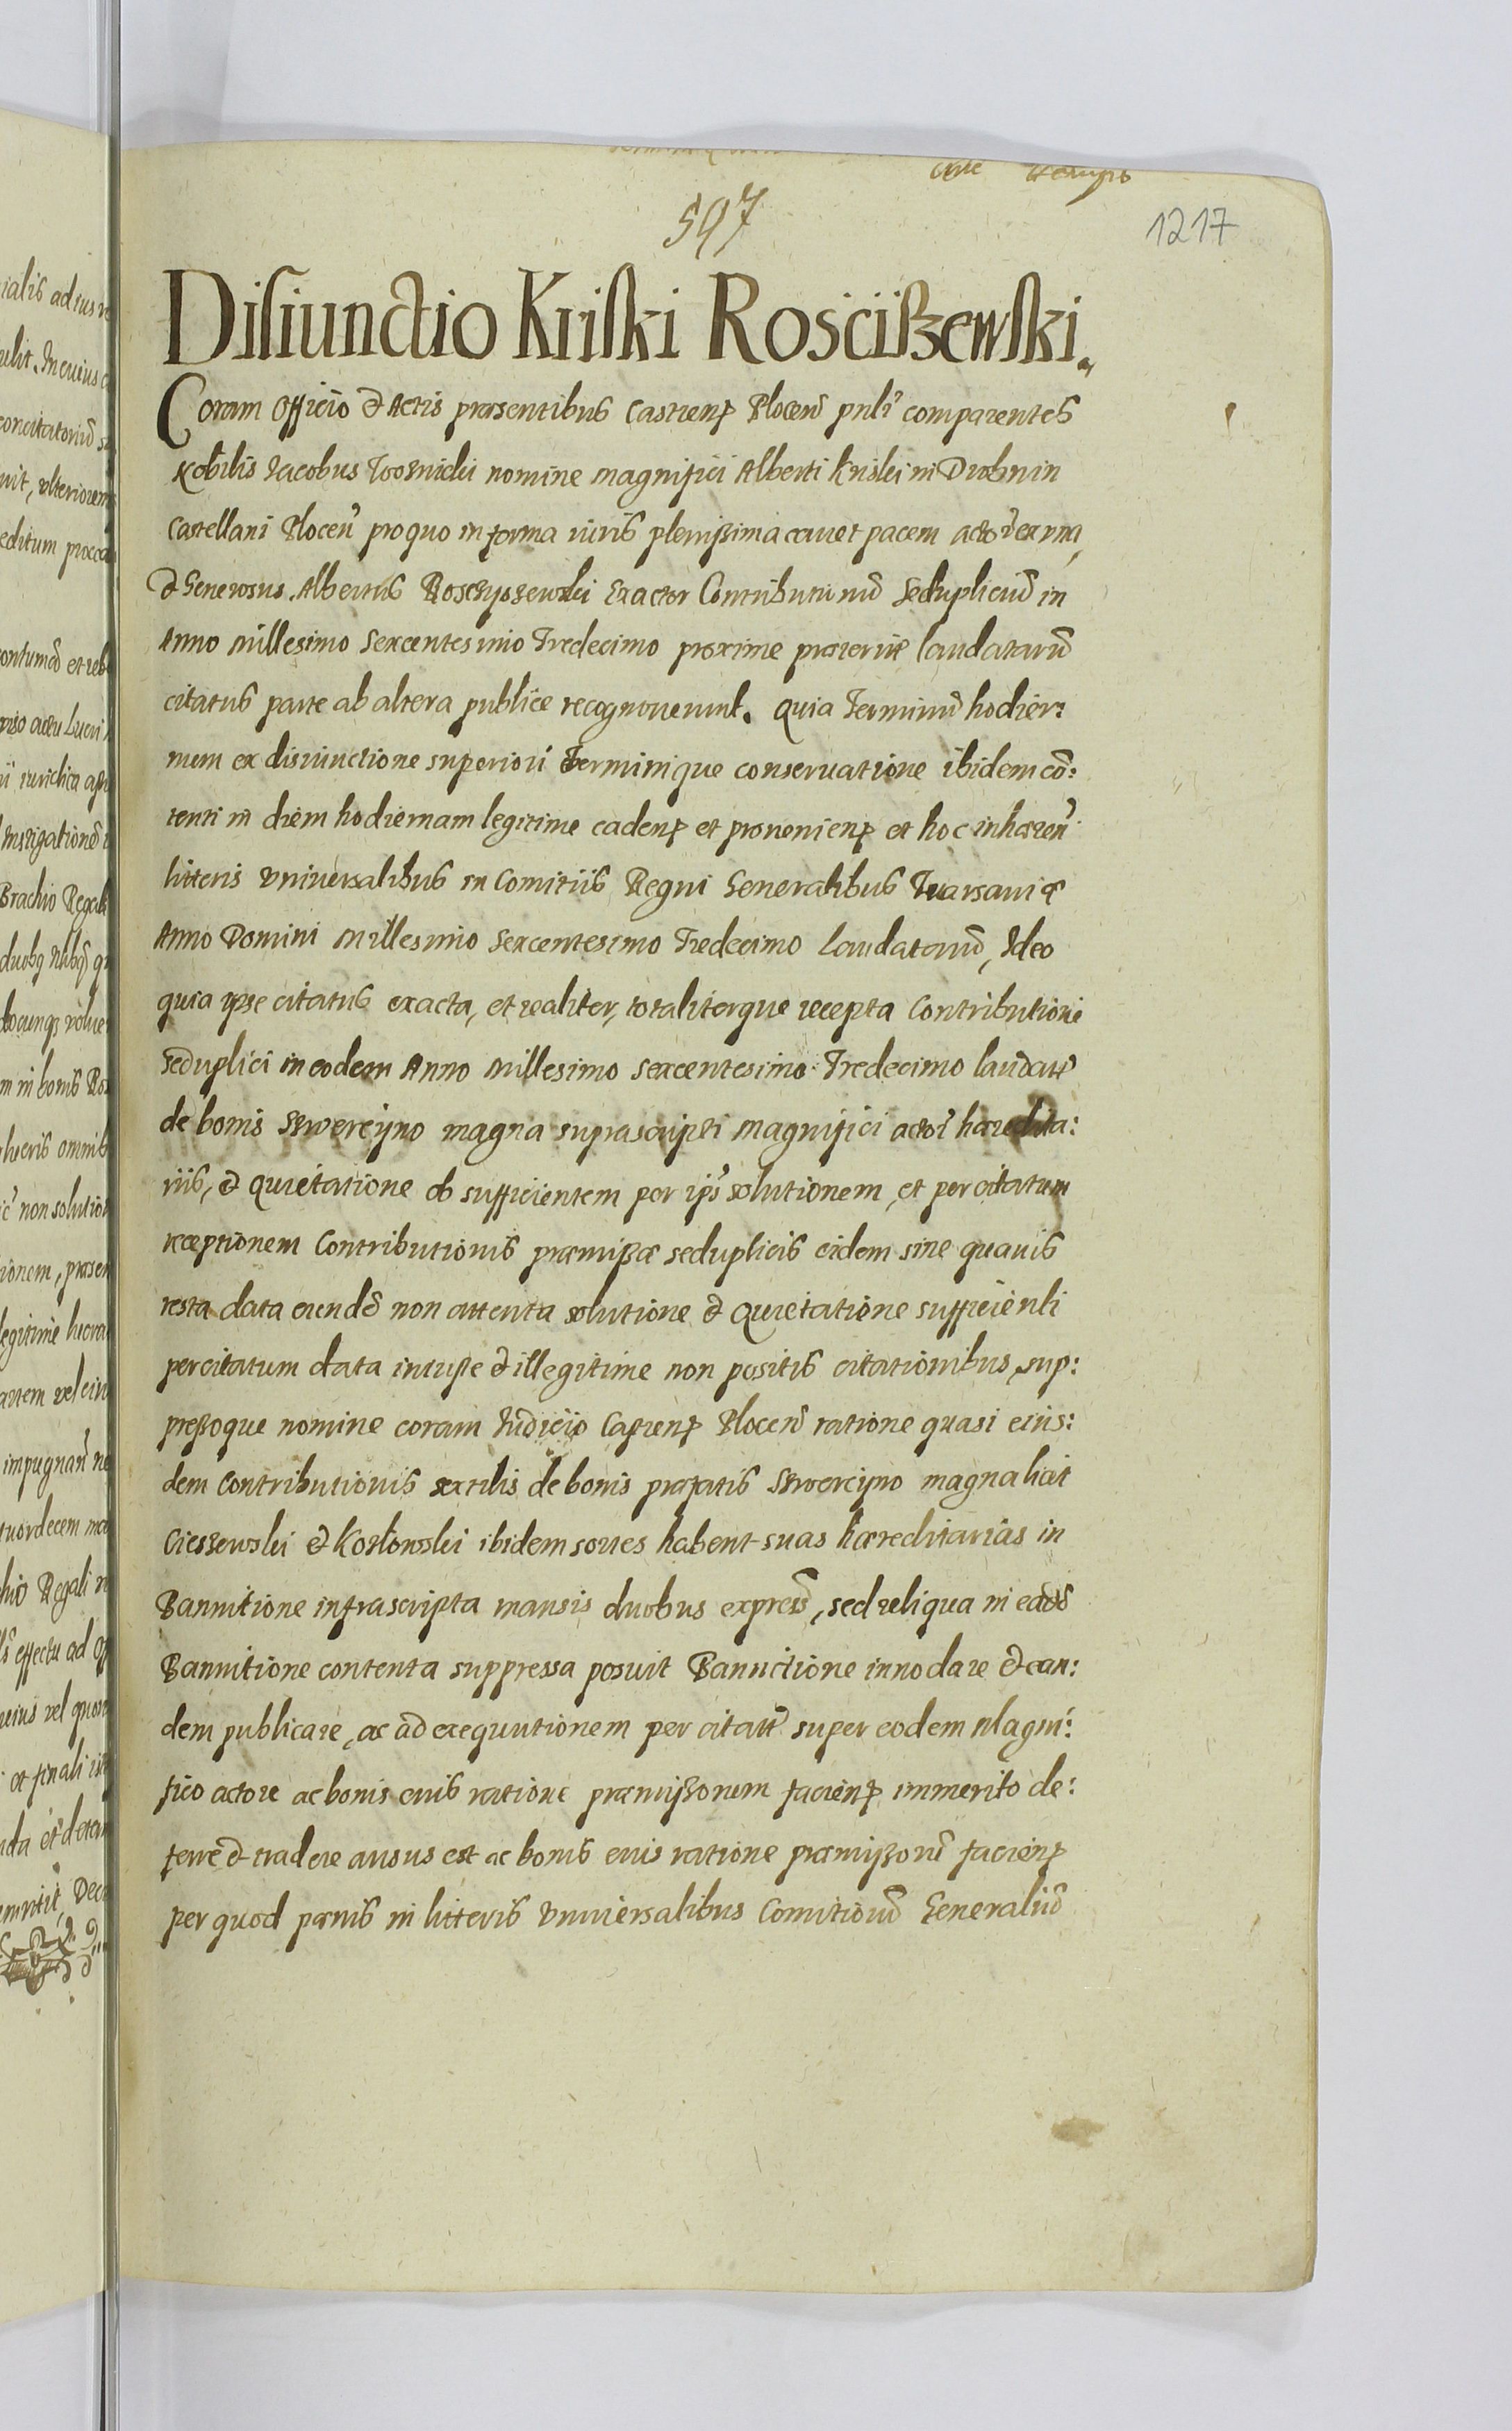 597
1217
Disiunctio Kriski Rosciiszewski.
Coram Officio & Actis praesentibus Castrens Plocen pnlr comparentes
Nobilis Jacobus nomine magnifici Alberti Kriski in Drobnin
Castellani Plocen pro quo in forma iuris plenissima cauet pacem actor ex una,
& Generosus Albertus Rosczyszewski Exactor Contributionũ Sedupliciũ in
Anno Millesimo Sexcentesimo Tredecimo proxime praeterite laudatarũ
citatus parte ab altera publice recognouerunt. Quia Terminũ hodier:
num ex disiunctione superiori Terminique conseruatione ibidem cõ:
tenti in diem hodiernam legitime cadens et proueniens et hoc inhaeren
litteris Vniuersalibus in Comitiis Regni Generalibus Warsauiae
Anno Domini Millesimo Sexcentesimo Tredecimo Laudatarũ, Ideo
quia ipse citatus exacta, et realiter, totaliterque recepta Contributione
Seduplici in eodem Anno Millesimo Sexcentesimo Tredecimo laudatt
de bonis Skwerczyno magna suprascripti Magnifici actor haeredita:
riis, & Quietatione ob sufficientem per ips solutionem et per citatum
receptionem Contributionis praemissae seduplicis eidem sine quauis
resta data eiendẽ non attenta solutione & Quietatione sufficienti
per citatum data iniuste & illegitime non positis citationibus, sup:
pressoque nomine coram Iudicio Castrens Plocen ratione quasi eius:
dem Contributionis sextilis de bonis praefatis Skwerczyno magna licet
Cieszewski & Kozłowski ibidem sortes habent suas haereditarias in
Bannitione infrascripta mansis duobus express, sed reliqua in eadẽ
Bannitione contenta suppressa posuit Bannitione innodare & ean:
dem publicare, ac ad exequutionem per citatt super eodem Magni:
fico actore ac bonis eius ratione praemissorum faciens immerito de:
ferre & tradere ausus est ac bonis eius ratione praemissorũ faciens
per quod paenis in litteris Vniuersalibus Comitiorũ Generaliũ